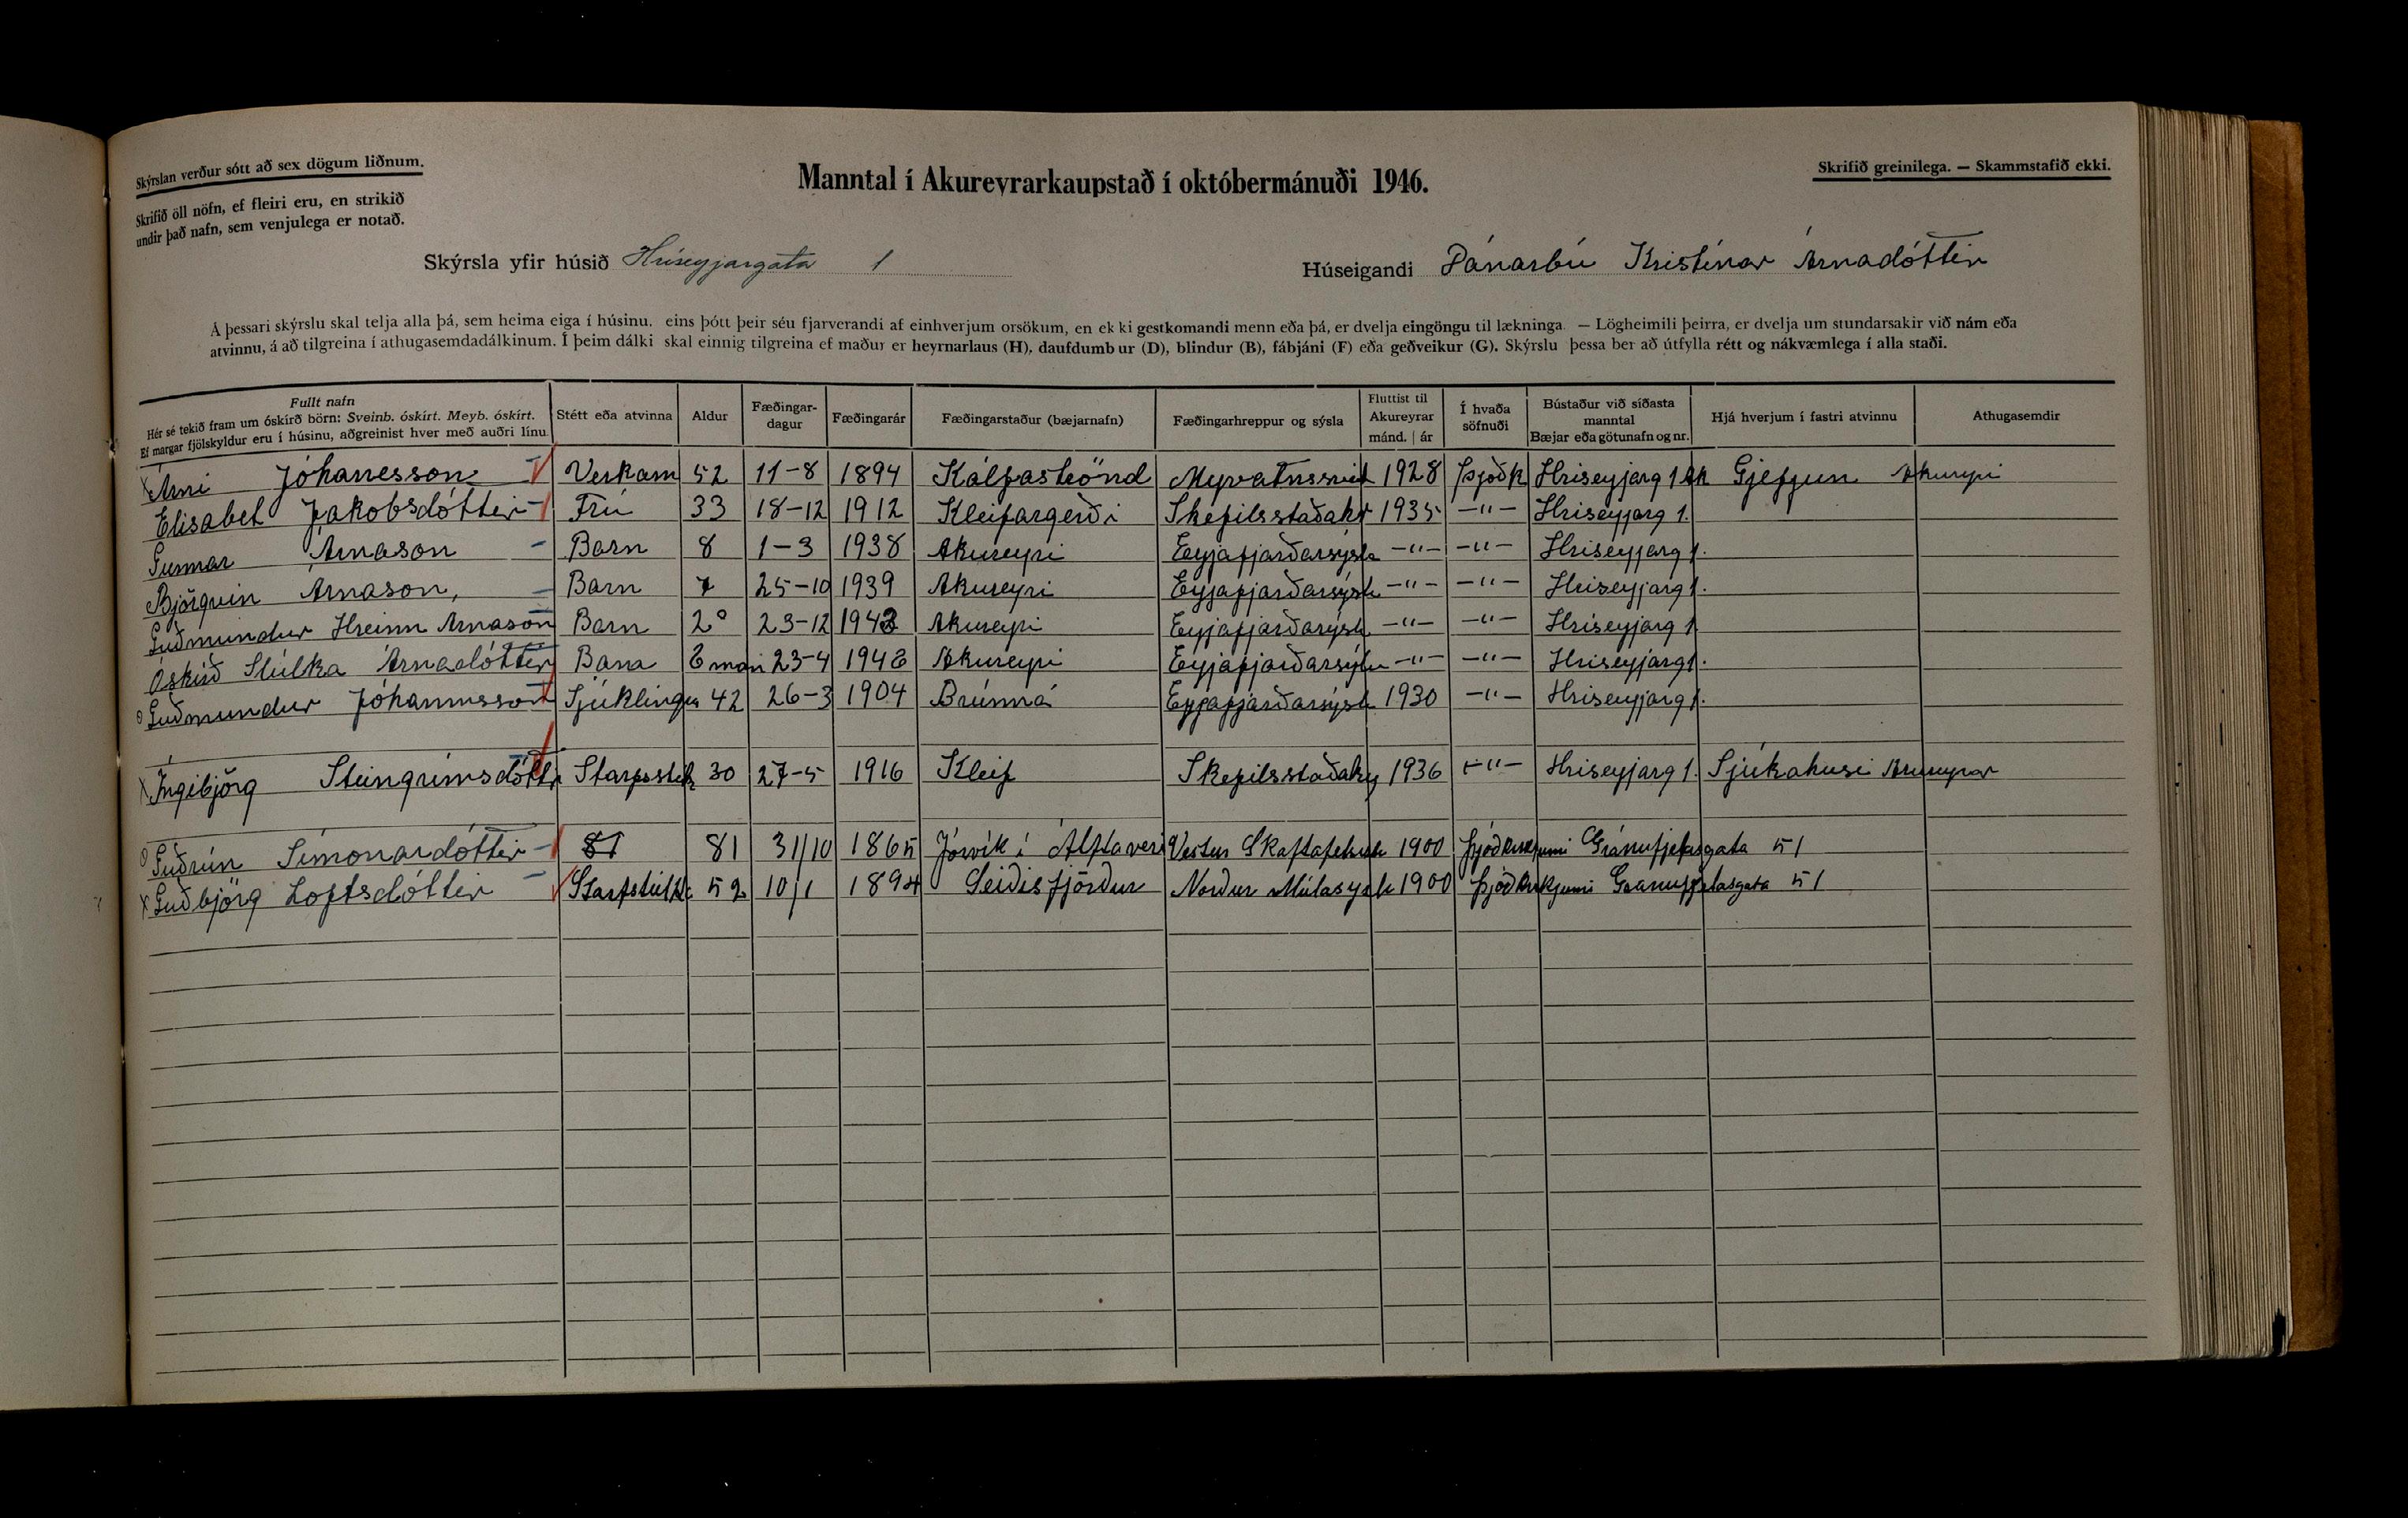 Skýrslan verður sótt að sex dögum liðnum.
Skrifið öll nöfn, ef fleiri eru, en strikið
undir það nafn, sem venjulega er notað.
Manntal í Akureyrarkaupstað í októbermánuði 1946.
Skrifið greinilega. — Skammstafið ekki.
Skýrsla yfir húsið Hríseyjargata 1
Húseigandi Dánarbú Kristínar Árnadóttir
Á þessari skýrslu skal telja alla þá, sem heima eiga í húsinu, eins þótt þeir séu fjarverandi af einhverjum orsökum, en ekki gestkomandi menn eða þá, er dvelja eingöngu til lækninga. — Lögheimili þeirra, er dvelja um stundarsakir við nám eða
atvinnu, á að tilgreina í athugasemdadálkinum. Í þeim dálki skal einnig tilgreina ef maður er heyrnarlaus (H), daufdumbur (D), blindur (B), fábjáni (F) eða geðveikur (G). Skýrslu þessa ber að útfylla rétt og nákvæmlega í alla staði.
Fullt nafn
Hér sé tekið fram um óskírð börn: Sveinb. óskírt. Meyb. óskírt.
Ef margar fjölskyldur eru í húsinu, aðgreinist hver með auðri línu.
Stétt eða atvinna
Aldur
Fæðingar-
dagur
Fæðingarár
Fæðingarstaður (bæjarnafn)
Fæðingarhreppur og sýsla
Fluttist til
Akureyrar
mánd. | ár
Í hvaða
söfnuði
Bústaður við síðasta
manntal
Bæjar eða götunafn og nr.
Hjá hverjum í fastri atvinnu
Athugasemdir
Árni Jóhanesson Verkam 52 11-8 1894 Kálfaströnd Myvatnssveit 1928 Þjóðk Hriseyjarg 1 Ak Gjefjun Akureyri
Elisabet Jakobsdóttir Frú 33 18-12 1912 Kleifargerði Skefilsstaðahr 1935 -"- Hriseyjarg 1.
Gunnar Árnason Barn 8 1-3 1938 Akureyri Eyjafjarðarsýsla -"- -"- Hriseyjarg 1.
Björgvin Arnason, Barn 7 25-10 1939 Akureyri Eyjafjarðarsýsla -"- -"- Hriseyjarg 1.
Guðmundur Hreinn Arnason Barn 2 23-12 1943 Akureyri Eyjafjarðarsýsla -"- -"- Hriseyjarg 1
Óskírð Stúlka Árnadóttir 23-4 Akureyri Eyjafjarðarsýslu -"- -"- Hriseyjarg 1.
Guðmundur Jóhannsson Sjúklingur 42 26-3 1904 Brúnná Eyjafjarðarsýsla 1930 -"- Hriseyjarg 1.
Ingibjörg Steingrímsdóttir Starfsstúlk 30 27-5 1916 Kleif Skefilsstaðahr 1936 -"- Hriseyjarg 1. Sjúkahusi Akureyrar
Guðrún Símonardóttir 81 81 31/10 1865 Jórvík í Álftaveri Vestur Skaftafelssýsla 1900 Þjóðkirkjunni Gránufjelagsgata 51
Guðbjörg Loftsdóttir Starfstúlka 52 10/1 1894 Seiðisfjörður Norður Múlasysla 1900 Þjóðkirkjunni Gránufjelasgata 51